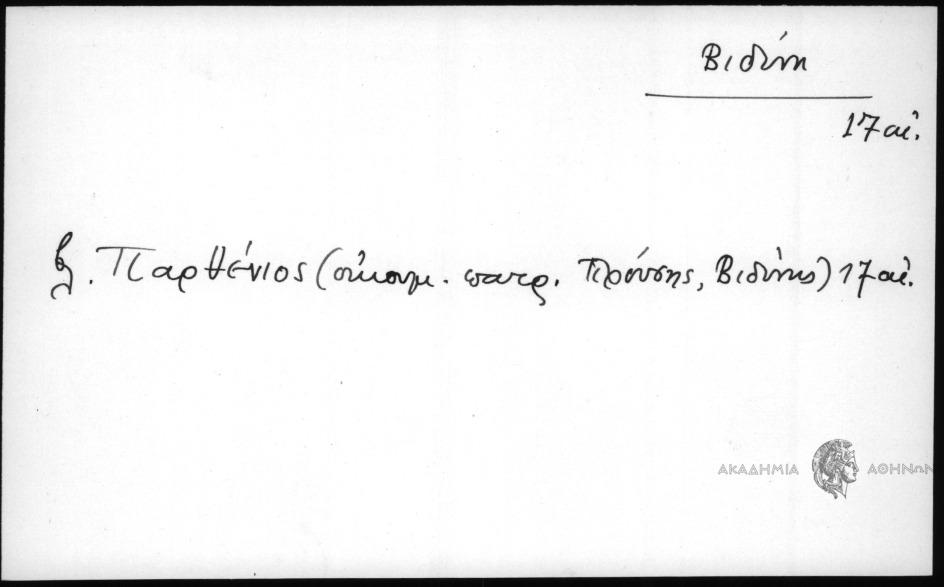 Βιδύνη
17 αἰ.
βλ. Παρθένιος (οἰκουμ. πατρ. Προύσης, Βιδύνης) 17 αἰ.
ΑΚΑΔΗΜΙΑ ΑΘΗΝΩΝ